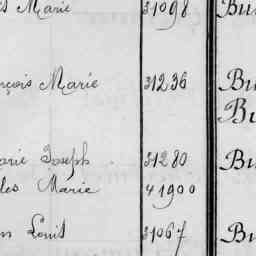 Marie 31098 Bu
nçois Marie 31236 Bu
Bu
arie Joseph 31280 Bu
les Marie 41900
n Louis 31067 Bu